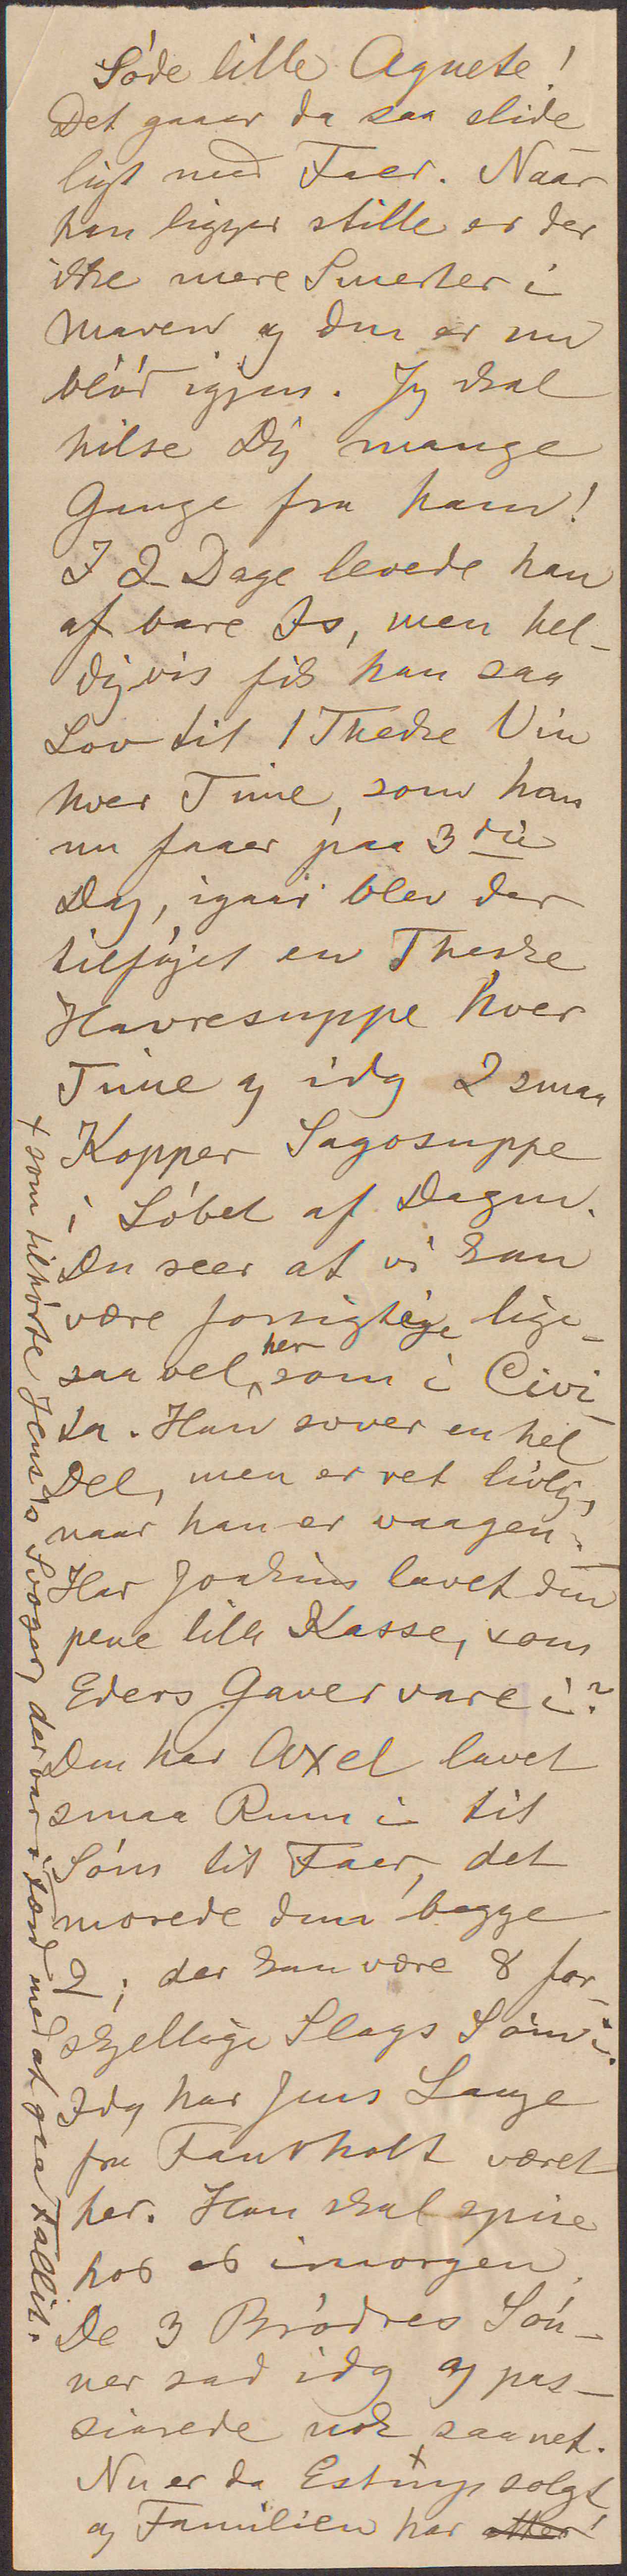 Søde lille Agnete!
Det gaaer da saa slide
ligt med Faer. Naar
han ligger stille er der
ikke mere Smerter i
Maven og den er nu
blød igjen. Jeg skal
hilse Dig mange
Gange fra ham!
I 2 Dage levede han
af bare Is, men hel-
digvis fik han saa
Lov til 1 Theske Vin
hver Time, som han
nu faaer paa 3die
Dag, igaar blev der
tilføjet en Theske
Havresuppe hver
Time og idag 2 smaa
Kopper Sagosuppe
i Løbet af Dagen.
Du seer at vi kan
være forsigtige lige-
saa vel her som i Civi-
ta. Han sover en hel
Del, men er ret livlig,
naar han er vaagen.
Har Joakim lavet den
pene lille Kasse, som
Eders Gaver vare i?
Den har Axel lavet
smaa Rum i til
Søm til Faer, det
morede dem begge
2; der kan være 8 for-
skjellige Slags Søm i.
Idag har Jens Lange
fra Favrholt været
her. Han skal spise
hos os imorgen.
De 3 Brødres Søn-
ner sad idag og pas-
siarede nok saa net.
Nu er da Estrup x solgt
og Familien har atter!
x som tilhørte Jens's Svoger, der var i Færd med at gaa Fallit.